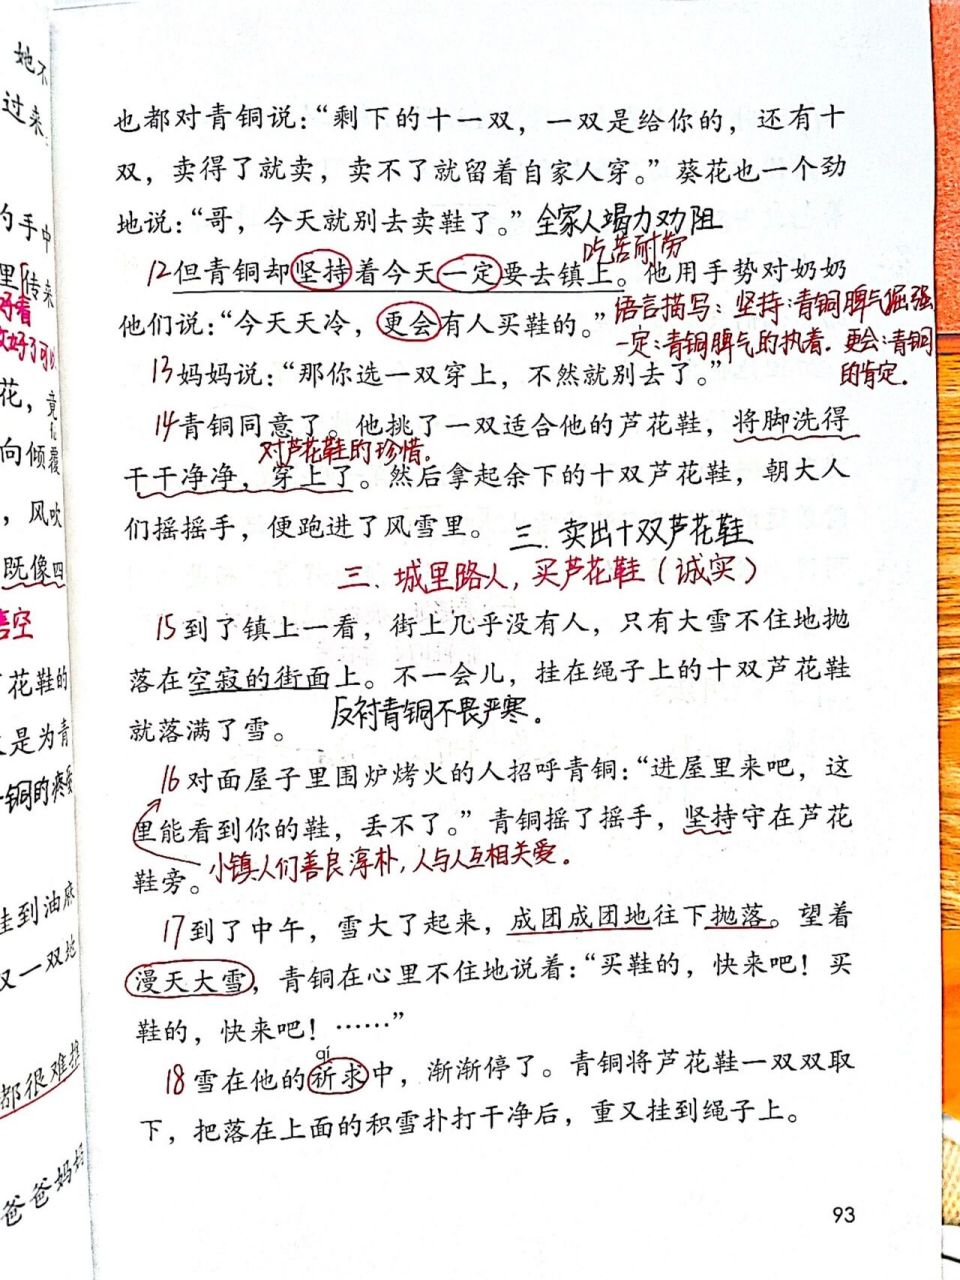 她不
过来
的手中
里传来
好看
花，竟
向倾覆
，风吹
既像四
悟空
花鞋的
是为青
铜的疼爱
挂到油麻
又一双地
都很难挂
爸爸妈妈
也都对青铜说：“剩下的十一双，一双是给你的，还有十
双，卖得了就卖，卖不了就留着自家人穿。”葵花也一个劲
地说：“哥，今天就别去卖鞋了。”全家人竭力劝阻
吃苦耐劳
12但青铜却坚持着今天一定要去镇上。他用手势对奶奶
他们说：“今天天冷，更会有人买鞋的。”
语言描写：坚持：青铜脾气倔强
一定：青铜脾气的执着．更会：青铜
的肯定．
13妈妈说：“那你选一双穿上，不然就别去了。”
14青铜同意了。他挑了一双适合他的芦花鞋，将脚洗得
对芦花鞋的珍惜．
干干净净，穿上了。然后拿起余下的十双芦花鞋，朝大人
们摇摇手，便跑进了风雪里。三．卖出十双芦花鞋
三．城里路人，买芦花鞋（诚实）
15到了镇上一看，街上几乎没有人，只有大雪不住地抛
落在空寂的街面上。不一会儿，挂在绳子上的十双芦花鞋
就落满了雪。反衬青铜不畏严寒。
16对面屋子里围炉烤火的人招呼青铜：“进屋里来吧，这
里能看到你的鞋，丢不了。”青铜摇了摇手，坚持守在芦花
鞋旁。小镇人们善良淳朴，人与人互相关爱。
17到了中午，雪大了起来，成团成团地往下抛落。望着
漫天大雪，青铜在心里不住地说着：“买鞋的，快来吧！买
鞋的，快来吧！……”
qí
18雪在他的祈求中，渐渐停了。青铜将芦花鞋一双双取
下，把落在上面的积雪扑打干净后，重又挂到绳子上。
93